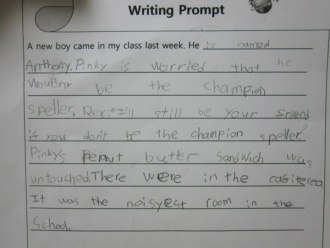 Writing Prompt
A new boy came in my class last week. He is named
Anthony. Pinky is worried that he
Wouldnt be the champion
speller, Rex still still be your friend
is you don't be the champion speller
Pinky's Pemut butter sandwich was
untouched. There were in the casiterea
It was the noisyest room in the
School.